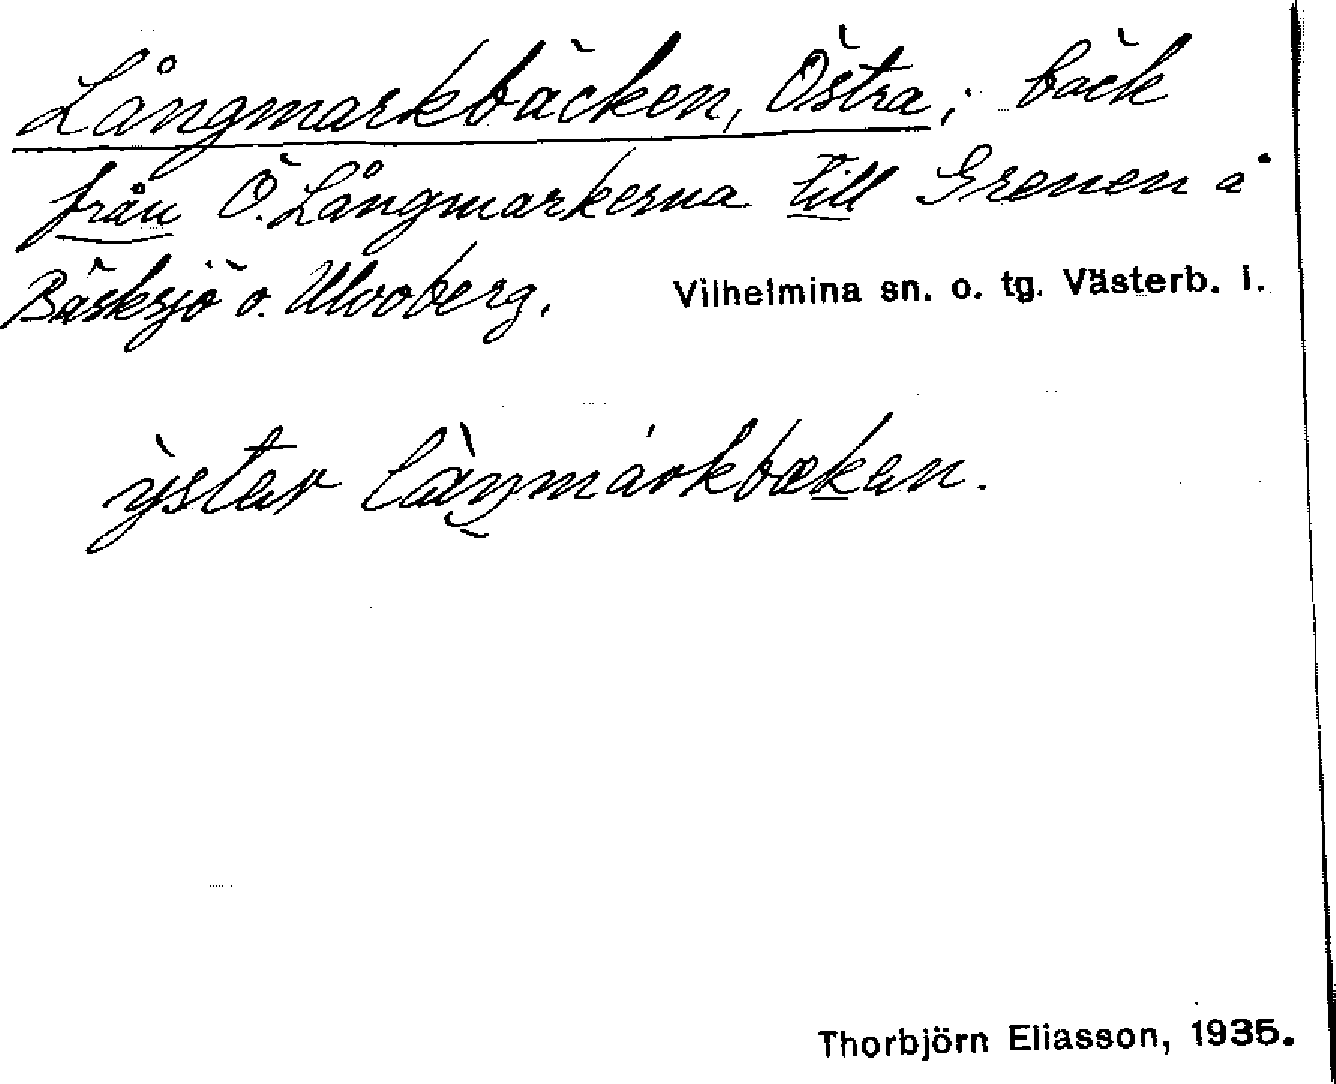 Långmarkbäcken, Östra; bäck
från Ö. Långmarkerna till Grenen å
Bäsksjö o. Ulvoberg. Vilhelmina sn. o. tg. Västerb. l.
ỳstar làŋmárkbækan.
Thorbjörn Eliasson, 1935.